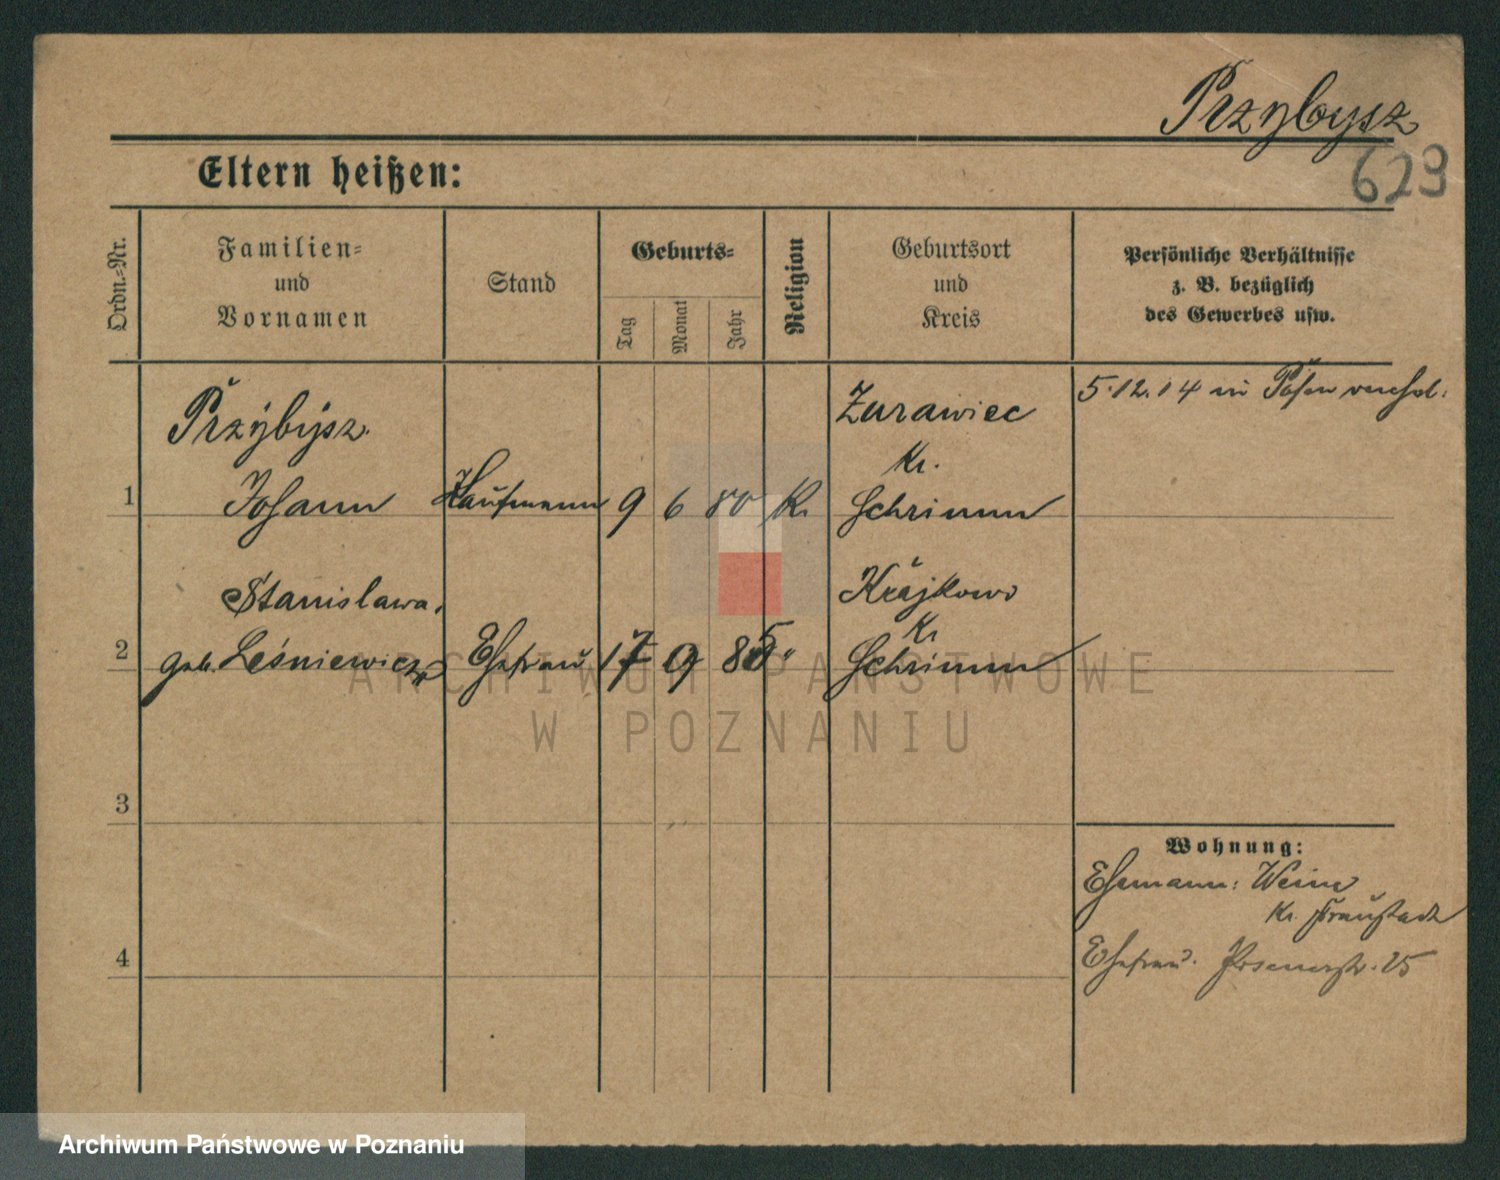 Przybysz
629
Eltern heißen:
Ordn.-Nr.
Familien-
und
Vornamen
Stand
Geburts-
Tag
Monat
Jahr
Religion
Geburtsort
und
Kreis
Persönliche Verhältnisse
z. B. bezüglich
des Gewerbes usw.
Przybysz
Zurawiec
5.12.14 in Posen verehel.
Kr.
1 Johann Kaufmann 9 6 80 K. Schrimm
Stanislawa,
Krajkowo
Kr
2 geb. Leśniewicz Ehefrau 17 9 85 " Schrimm
ARCHIWUM PAŃSTWOWE
W POZNANIU
3
Wohnung:
Ehemann: Weine
Kr. Fraustadt
4
Ehefrau. Posenerstr. 25
Archiwum Państwowe w Poznaniu